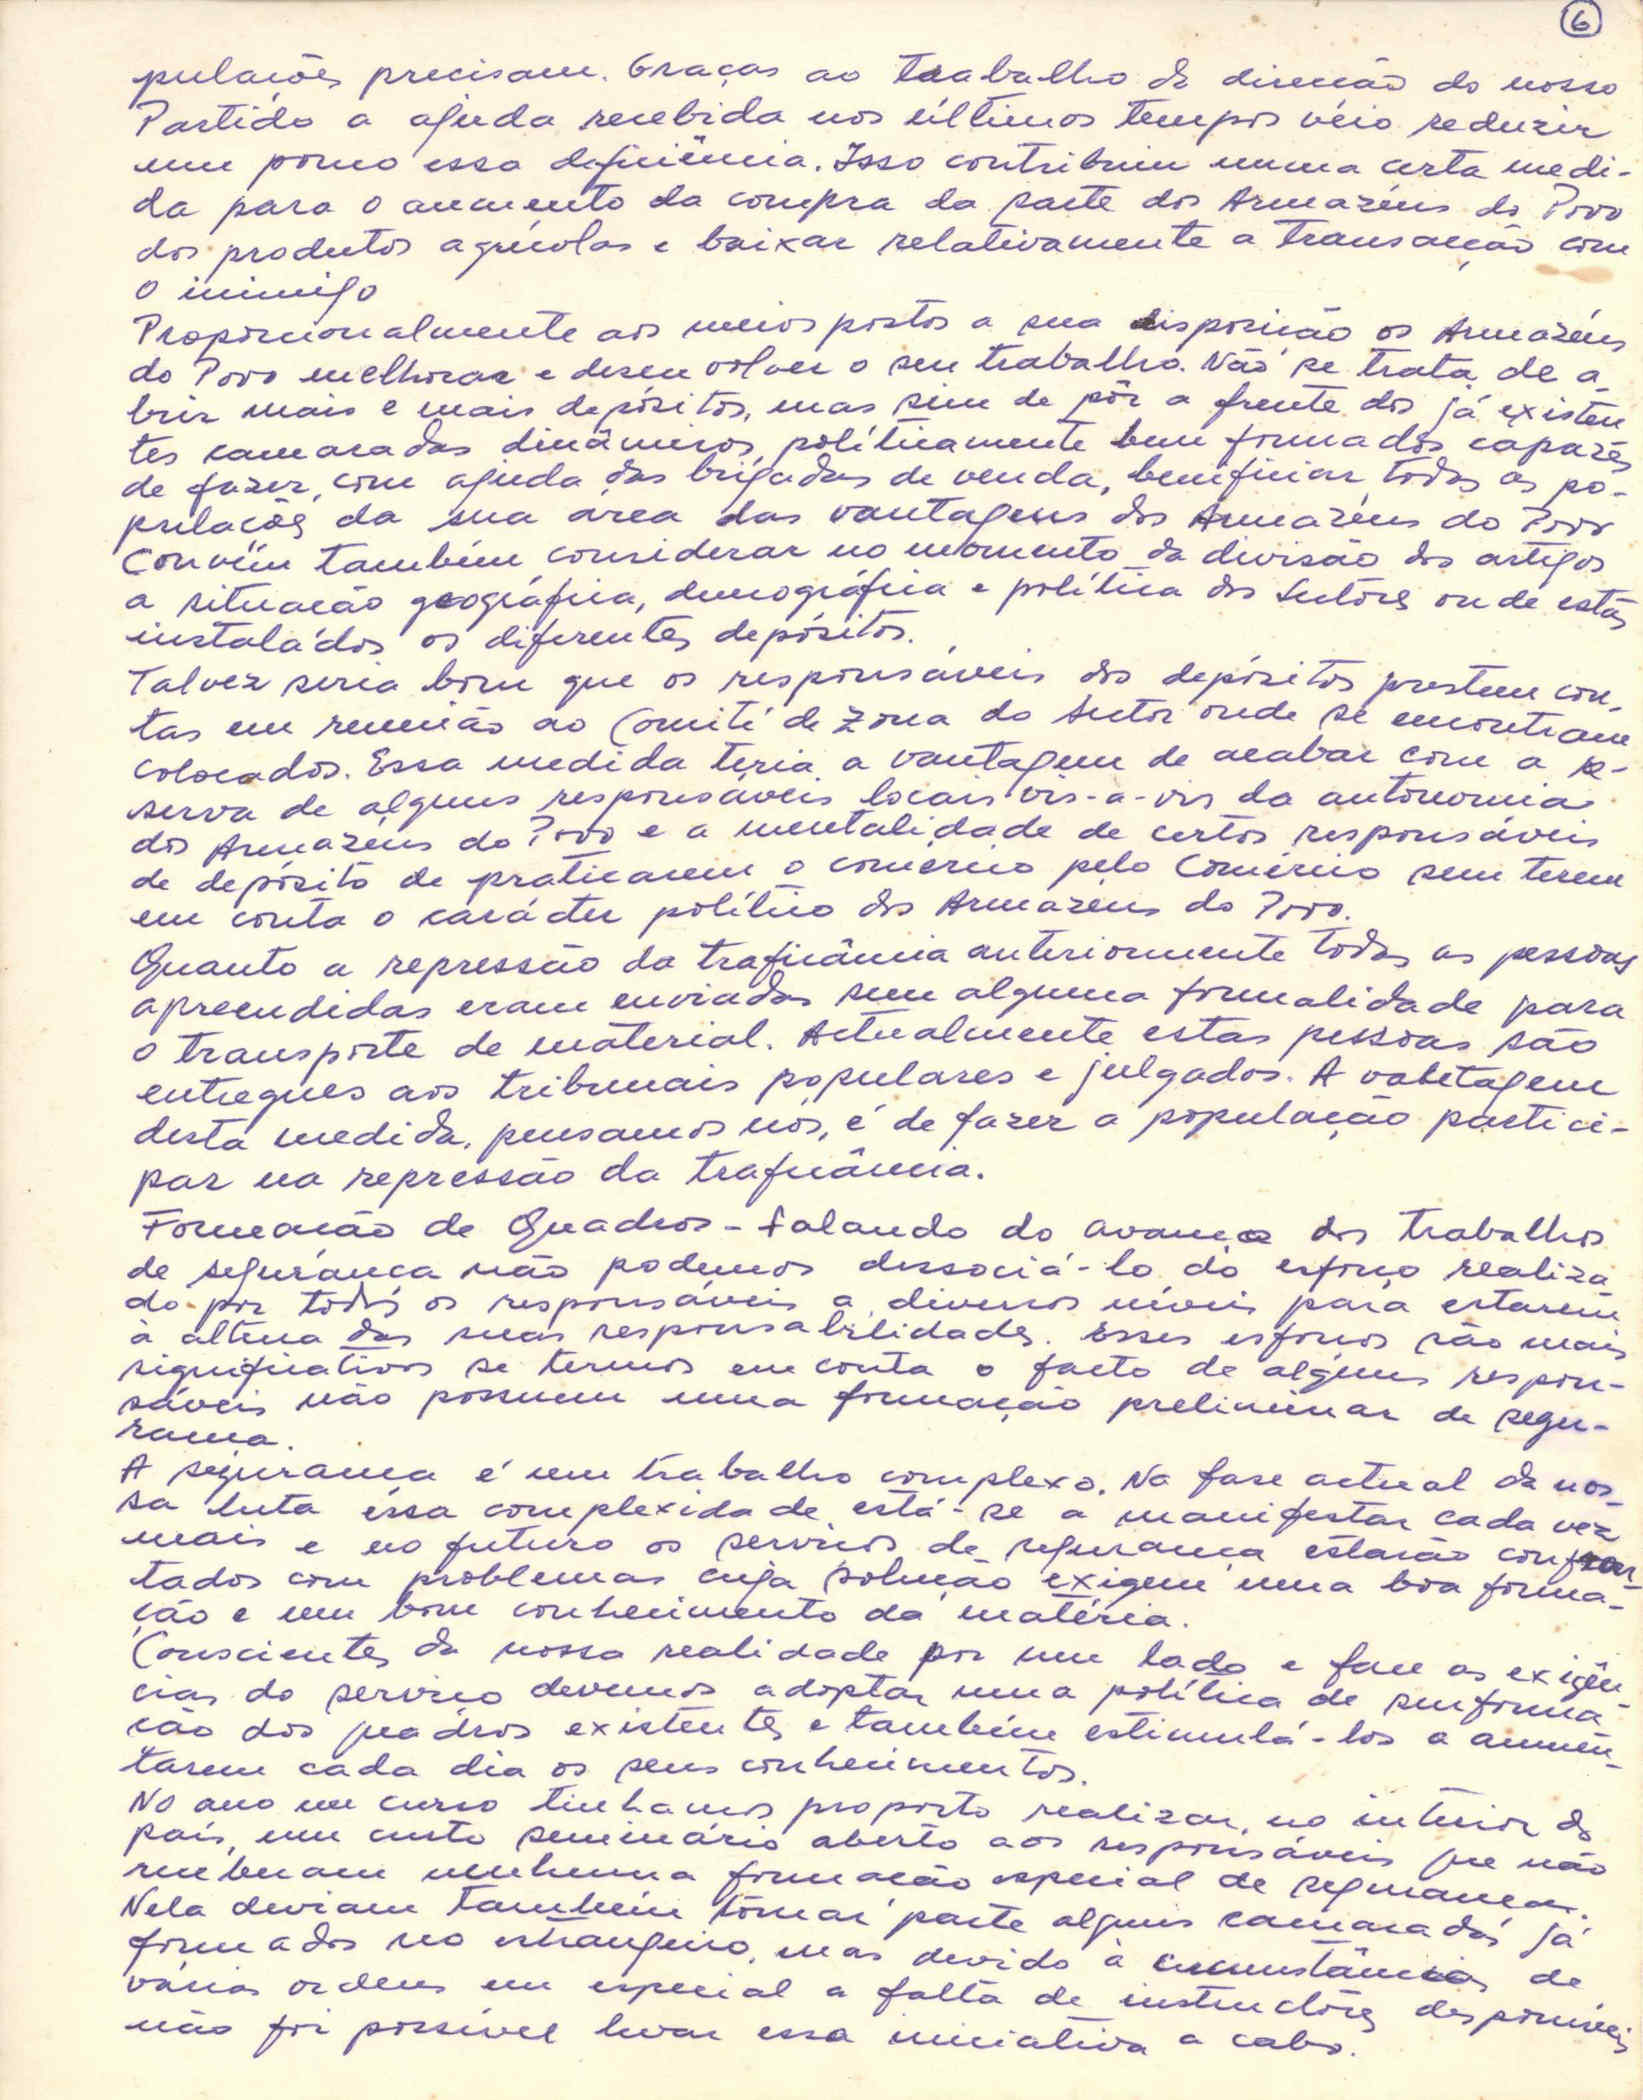 6
pulações precisam. Graças ao trabalho da direcção do nosso
Partido a ajuda recebida nos últimos tempos véio reduzir
um pouco essa deficiência. Isso contribuiu numa certa medi-
da para o aumento da compra da parte dos Armazéns do Povo
dos produtos agrícolas e baixar relativamente a transacção com
o inimigo
Proporcionalmente aos meios postos a sua disposição os Armazéns
do Povo melhorar e desenvolver o seu trabalho. Não se trata de a-
brir mais e mais depósitos, mas sim de pôr a frente dos já existen
tes camaradas dinâmicos, políticamente bem formados capazes
de fazer, com ajuda das brigadas de venda, beneficiar todas as po-
pulações da sua área das vantagens dos Armazéns do Povo
Convém também considerar no momento da divisão dos artigos
a situação geográfica, demográfica e política dos Sectores onde estão
instaládos os diferentes depósitos.
Talvez seria bom que os responsáveis dos depósitos prestem con-
tas em reunião ao Comité de Zona do Sector onde se encontram
colocados. Essa medida teria a vantagem de acabar com a re-
serva de alguns responsáveis locais vis-a-vis da autonomia
dos Armazéns do Povo e a mentalidade de certos responsáveis
de depósito de praticarem o comércio pelo Comércio sem terem
em conta o carácter político dos Armazéns do Povo.
Quanto a repressão da traficância anteriormente todas as pessoas
apreendidas eram enviadas sem alguma formalidade para
o transporte de material. Actualmente estas pessoas são
entregues aos tribunais populares e julgados. A vabetagem
desta medida, pensamos nós, é de fazer a população partici-
par na repressão da traficância.
Formação de Quadros - falando do avanço dos trabalhos
de segurança não podemos dissociá-lo do esforço realiza
do por todos os responsáveis a diversos níveis para estarem
à altura das suas responsabilidades. Esses esforços são mais
significativos se termos em conta o facto de alguns respon-
sáveis não possuem uma formação preliminar de segu-
rança.
A segurança é um trabalho complexo. Na fase actual da nos-
sa luta essa complexidade está-se a manifestar cada vez
mais e no futuro os serviços de segurança estarão confron-
tados com problemas cuja solução exigem uma boa forma-
ção e um bom conhecimento da matéria.
Conscientes da nossa realidade por um lado e face as exigên-
cias do serviço devemos adoptar uma política de
ção dos quadros existentes e também estimulá-los a aumen-
tarem cada dia os seus conhecimentos.
No ano em curso tinhamos proposto realizar, no interior do
país, um curto seminário aberto aos responsáveis que não
receberam nenhuma formação especial de segurança.
Nela deviam também tomar parte alguns camaradas já
formados no estrangeiro, mas devido à circunstâncias de
várias ordens em especial a falta de instructores disponíveis
não foi possível levar essa iniciativa a cabo.